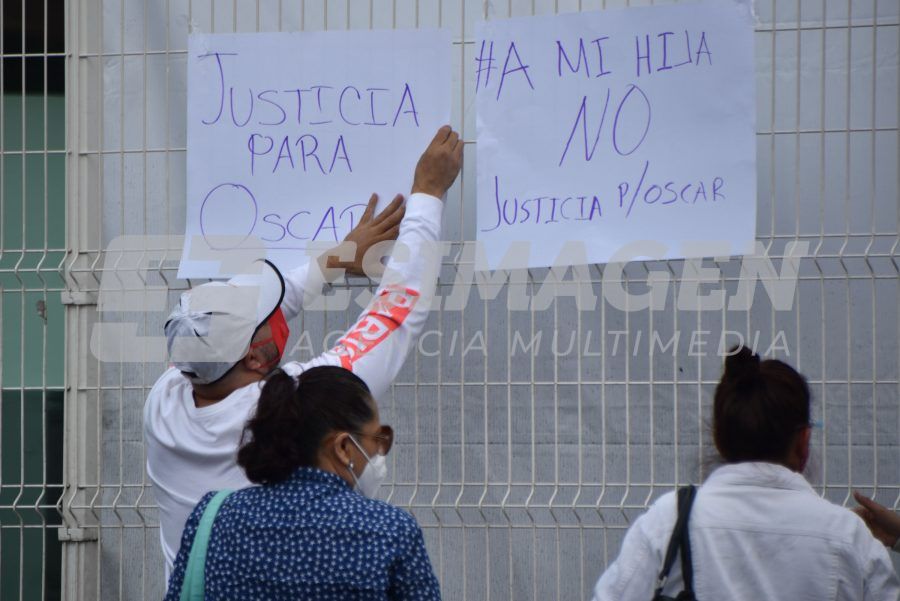 JUSTICIA
PARA
OSCAR
#A MI HIJA
NO
JUSTICIA P/OSCAR
ESIMAGEN
AGENCIA MULTIMEDIA